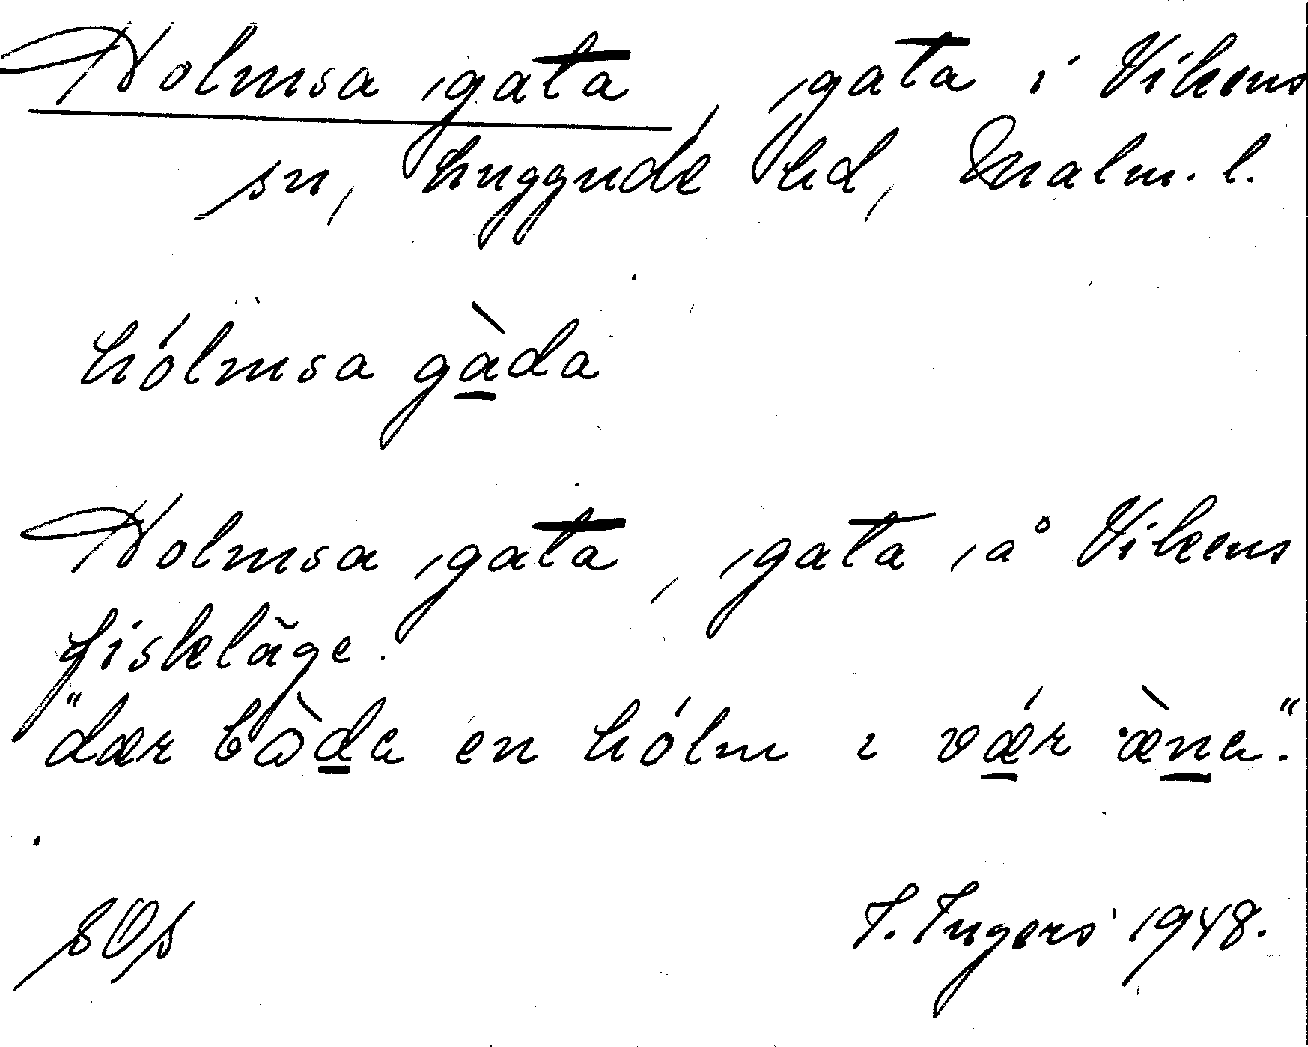 Holmsa gata, gata i Vikens
sn, Luggude hd, Malm. l.
hólmsa gàda
Holmsa gata, gata å Vikens
fiskläge.
"dær bòda en hólm i vær æna."
SOS I. Ingers 1948.